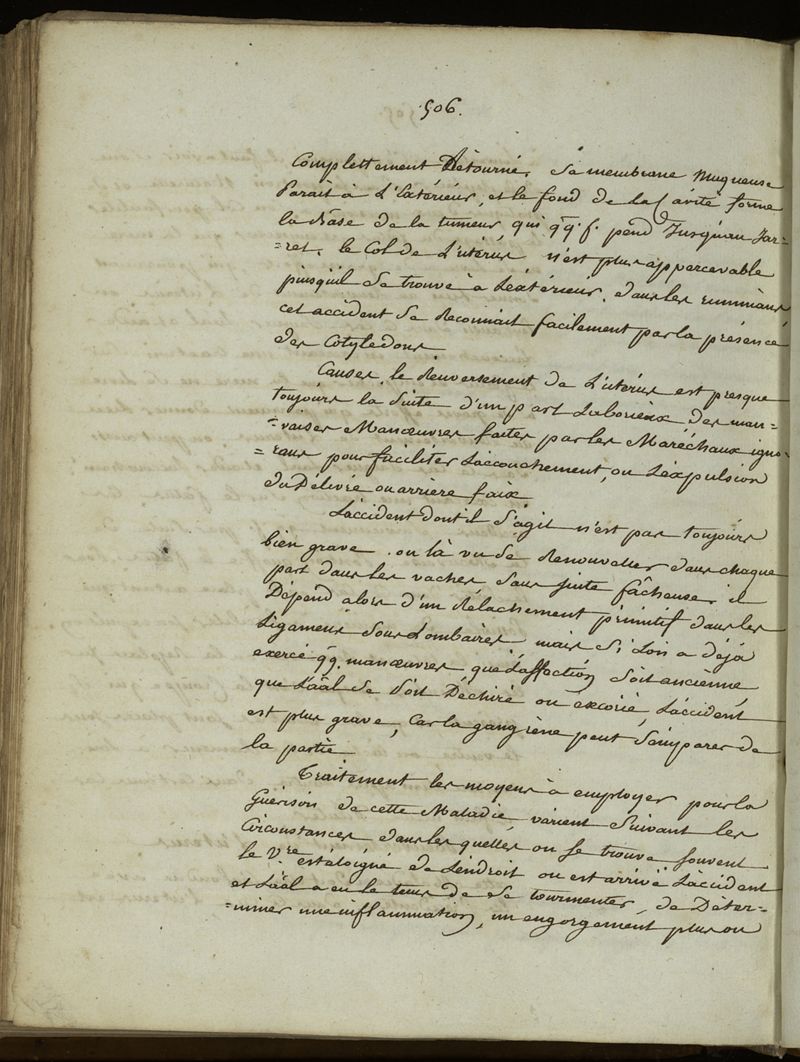 .506.
Complettement Détourné. Sa membrane Muqueuse
Parait à L'éxtérieur, et le fond de la Cavité forme
la Base de la tumeur, qui qq. f. pend Jusqu'au Jar-
=ret. le Col de L'utérus n'est plus appercevable
puisqu'il se trouve à L'éxtérieur. dans les ruminans
cet accident se Reconnait facilement par la présence
des Cotyledons
Causes. le Renversement de L'utérus est presque
toujours la Suite d'un part Laborieux Des mau-
=vaises Manœuvres faites par les Maréchaux igno-
=rans pour faciliter L'accouchement, ou L'éxpulsion
du Délivre ou arriere faix
L'accident dont il S'agit n'est pas toujours
bien grave. on là vu se Renouveller dans chaque
part dans les vaches Sans suite fâcheuse, il
Dépend alors d'un Rélachement primitif dans les
Ligamens Sous Lombaires, mais Si Lon a déjà
exercé qq. manœuvres que L'affection Soit ancienne,
que L'aâl Se Soit Déchiré ou excorié, L'accident
est plus grave, Car la gangrène peut S'émparer de
la partie
Traitement les moyens à employer pour la
Guérison de cette Maladie varient Suivant les
Circonstances dans les quelles on se trouve souvent
le Vre. est éloigné de L'éndroit ou est arrivé L'accident
et L'aâl a eu le tems de Se tourmenter, de Déter-
=miner une inflammation, un engorgement plus ou